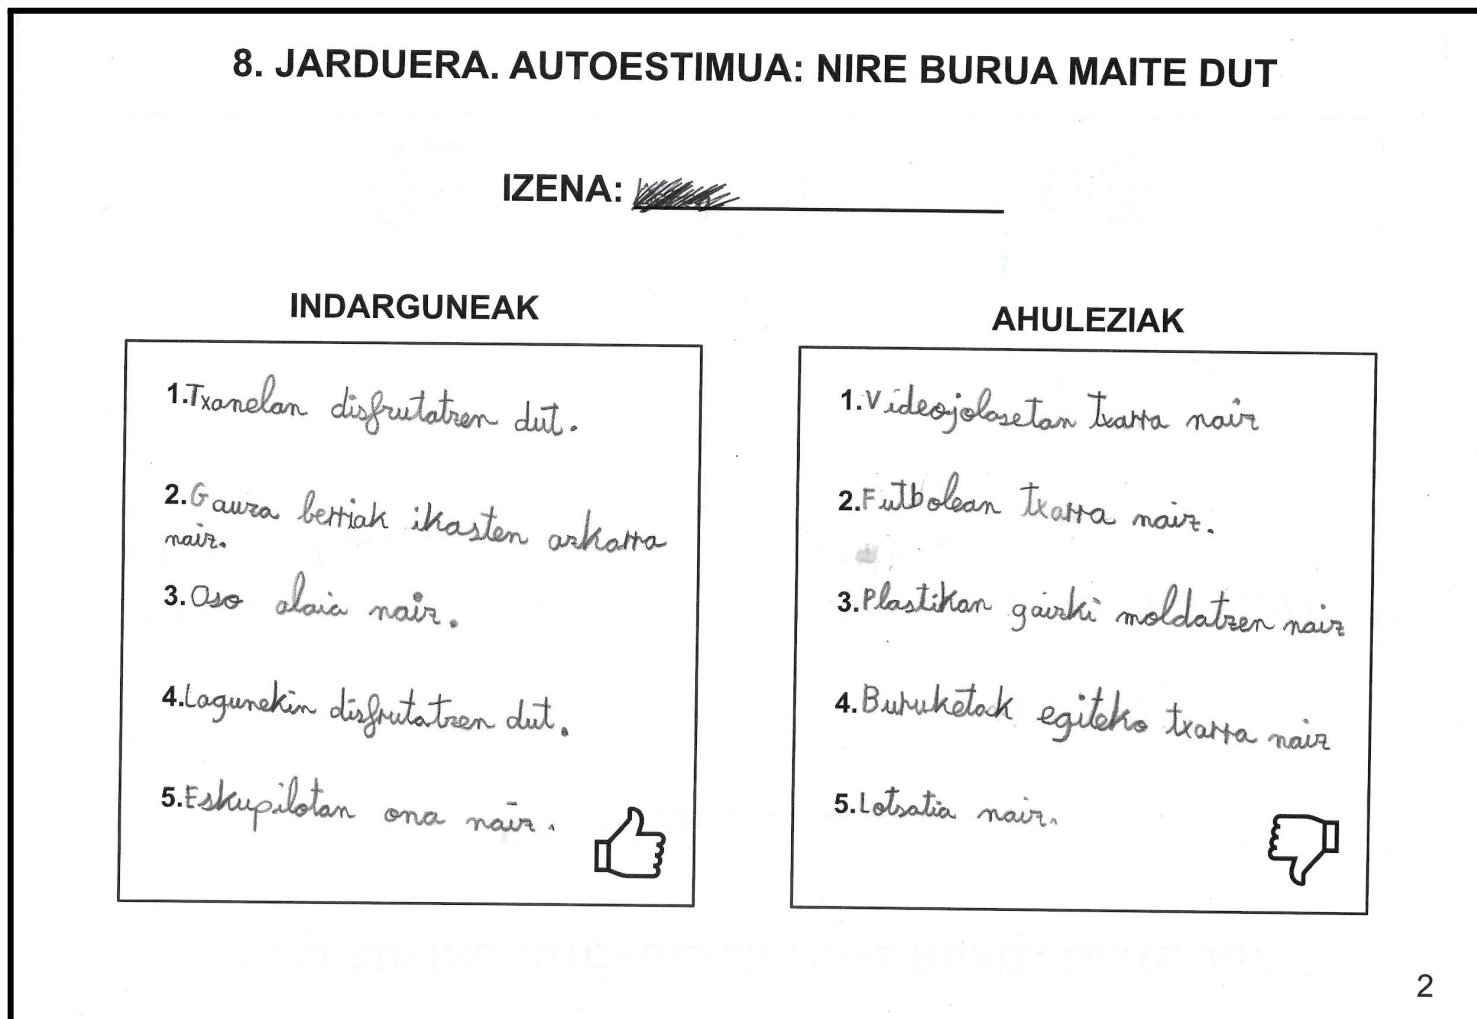 8. JARDUERA. AUTOESTIMUA: NIRE BURUA MAITE DUT
IZENA:
INDARGUNEAK
1.Txanelan disfrutatzen dut.
2.Gauza berriak ikasten azkarra
naiz.
3.Oso alaia naiz.
4.Lagunekin disfrutatzen dut.
5.Eskupilotan ona naiz.
AHULEZIAK
1.Videojolasetan txarra naiz
2.Futbolean txarra naiz.
3.Plastikan gaizki moldatzen naiz
4.Buruketak egiteko txarra naiz
5.Lotsatia naiz.
2